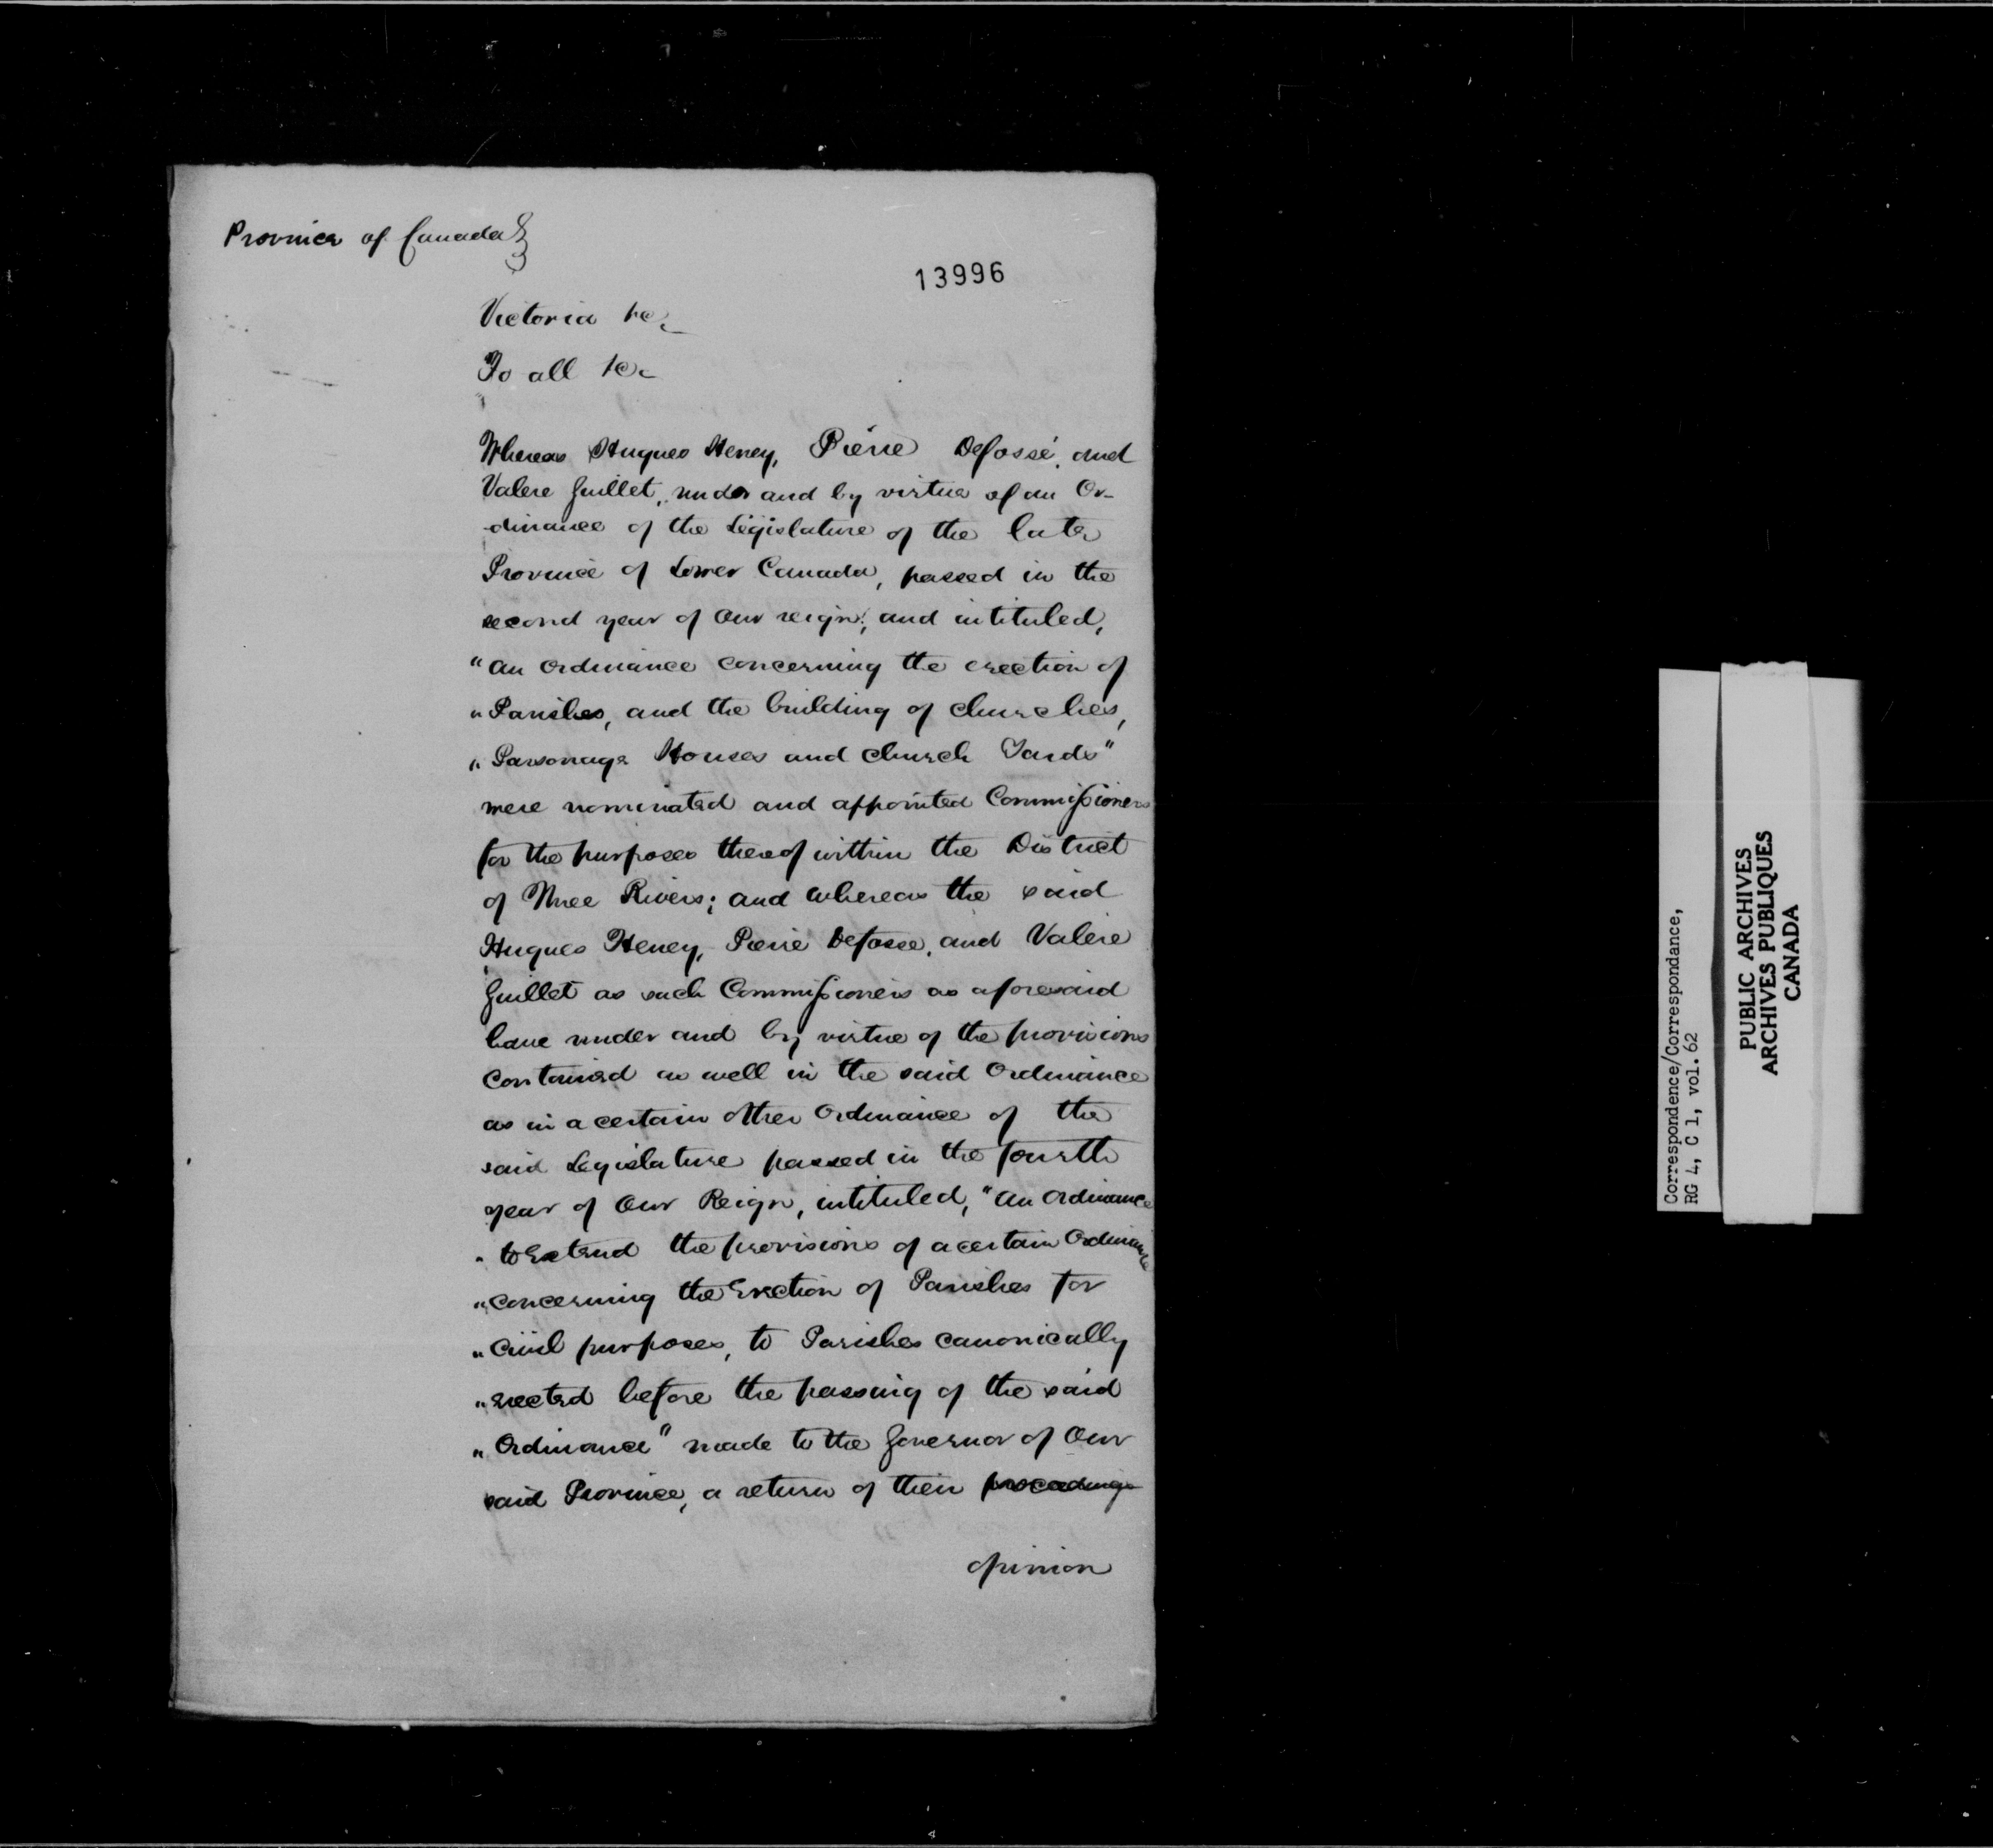 Province of Canada
13996
Victoria &c
To all &c
Whereas Hugues Heney, Pierre Defossé, and
Valere Guillet, under and by virtue of an Or-
dinance of the Legislature of the late
Province of Lower Canada, passed in the
second year of Our reign, and intituled,
"An Ordinance concerning the erection of
"Parishes, and the building of churches,
"Parsonage Houses and Church Yards"
were nominated and appointed Commissioners
for the purposes thereof within the District
of Three Rivers; and whereas the said
Hugues Heney, Pierre Defosse, and Valere
Guillet as such Commissioners as aforesaid
have under and by virtue of the provisions
contained as well in the said Ordinance
as in a certain other Ordinance of the
said Legislature passed in the fourth
year of Our Reign, intituled, "An Ordinance
"to Extend the provisions of a certain Ordinance
"concerning the Erection of Parishes for
"Civil purposes, to Parishes canonically
"erected before the passing of the said
"Ordinance" made to the Governor of Our
said Province, a return of their proceedings
opinion
Correspondence/Correspondance,
RG 4, C 1, vol. 62
PUBLIC ARCHIVES
ARCHIVES PUBLIQUES
CANADA